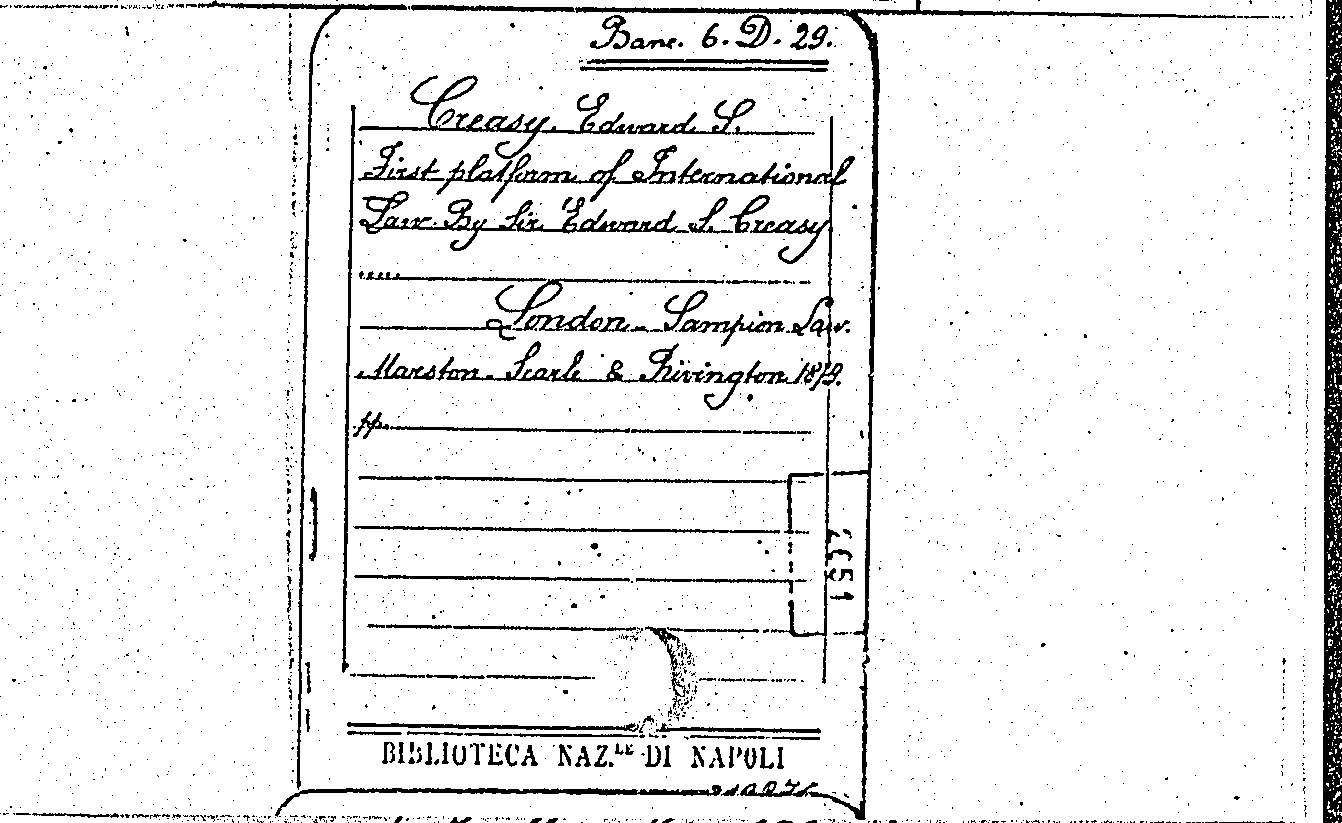 Banc. 6. D. 29.
Creasy, Edward S.
First platform of International
Law. By Sir Edward S. Creasy
.....
London - Sampion Law.
Marston - Searle & Rivington 1879.
pp.
BIBLIOTECA NAZ.LE DI NAPOLI